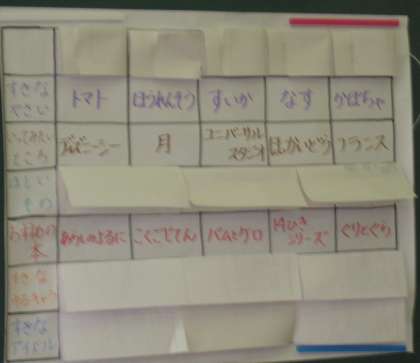 すきな やさい
トマト ほうれんそう すいか なす かぼちゃ
いってみたい ところ
ディズニーシー 月 ユニバーサル スタジオ ほっかいどう フランス
ほしい もの
おすすめの 本
あらしのよるに こくごじてん バムとケロ シリーズ ぐりとぐら
すきな
すきな アイドル